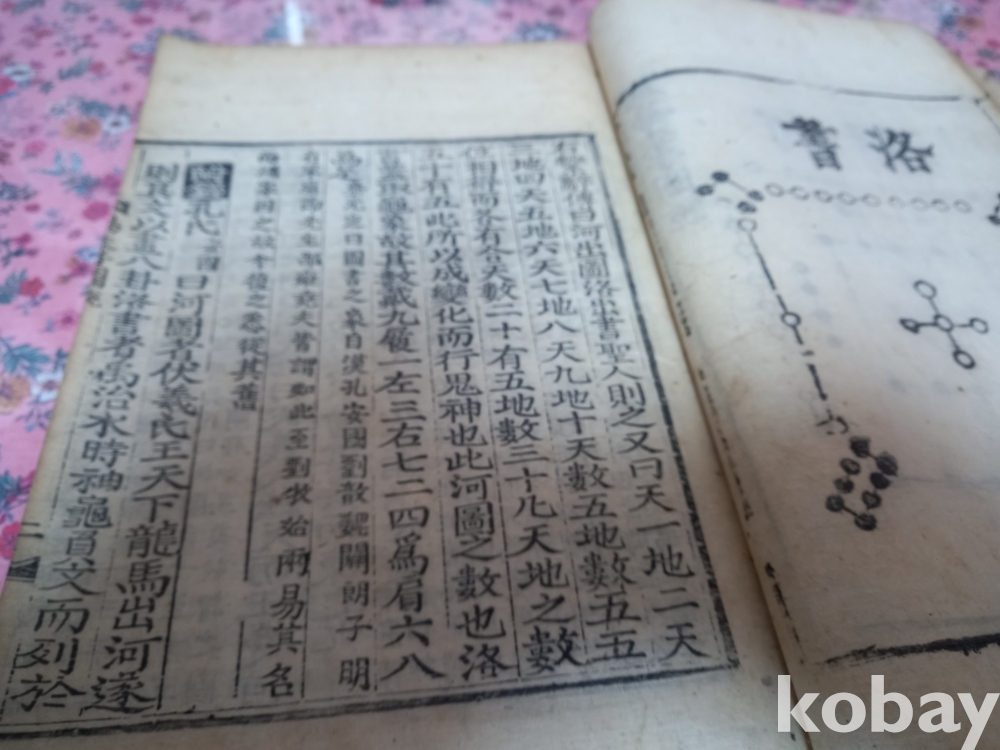 洛書
繫辭傳曰河出圖洛出書聖人則之又曰天一地二天
三地四天五地六天七地八天九地十天數五地數五五
位相得而各有合天數二十有五地數三十凡天地之數
五十有五此所以成變化而行鬼神也此河圖之數也洛
書蓋取龜象故其數戴九履一左三右七二四爲肩六八
爲足
蔡元定曰圖書之象自漢孔安國劉歆魏關朗子明
有宋康節先生邵雍堯夫皆謂如此至劉牧始兩易其名
而諸家因之故今復之悉從其舊
孔氏安國曰河圖者伏羲氏王天下龍馬出河遂
則其文以畫八卦洛書者禹治水時神龜負文而列於
二
kobay